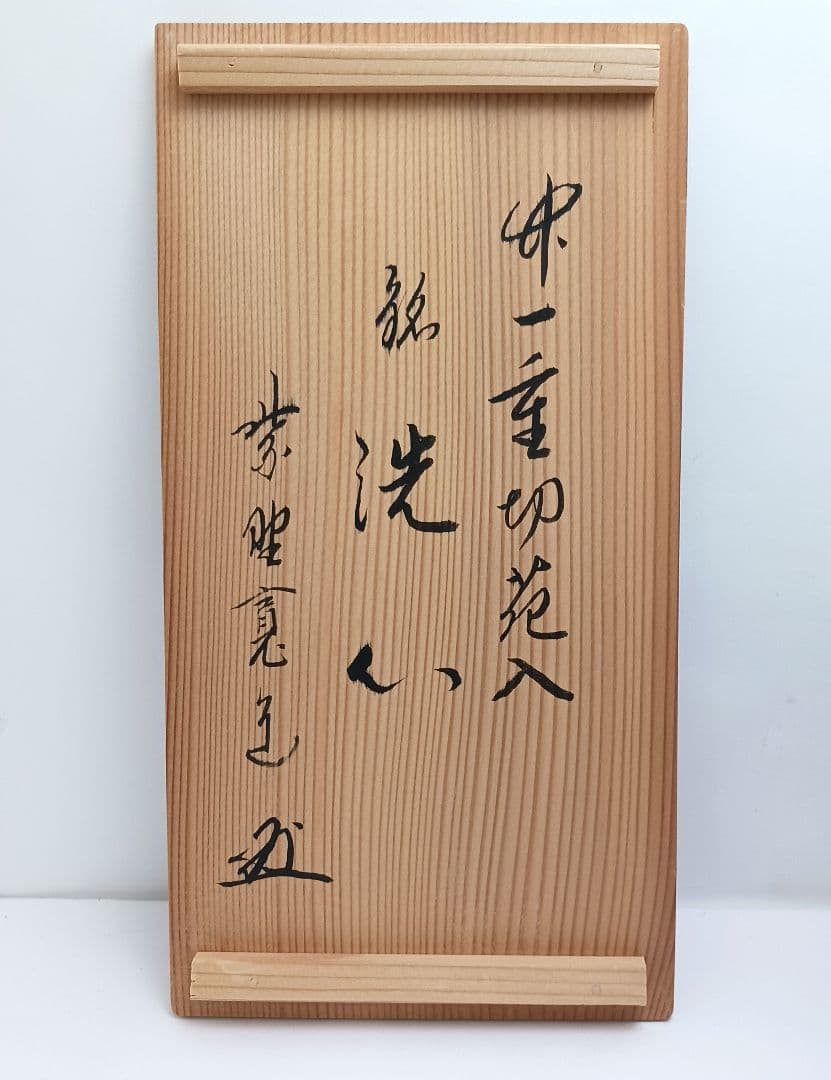 竹一重切花入
銘 洗心
紫野寛道